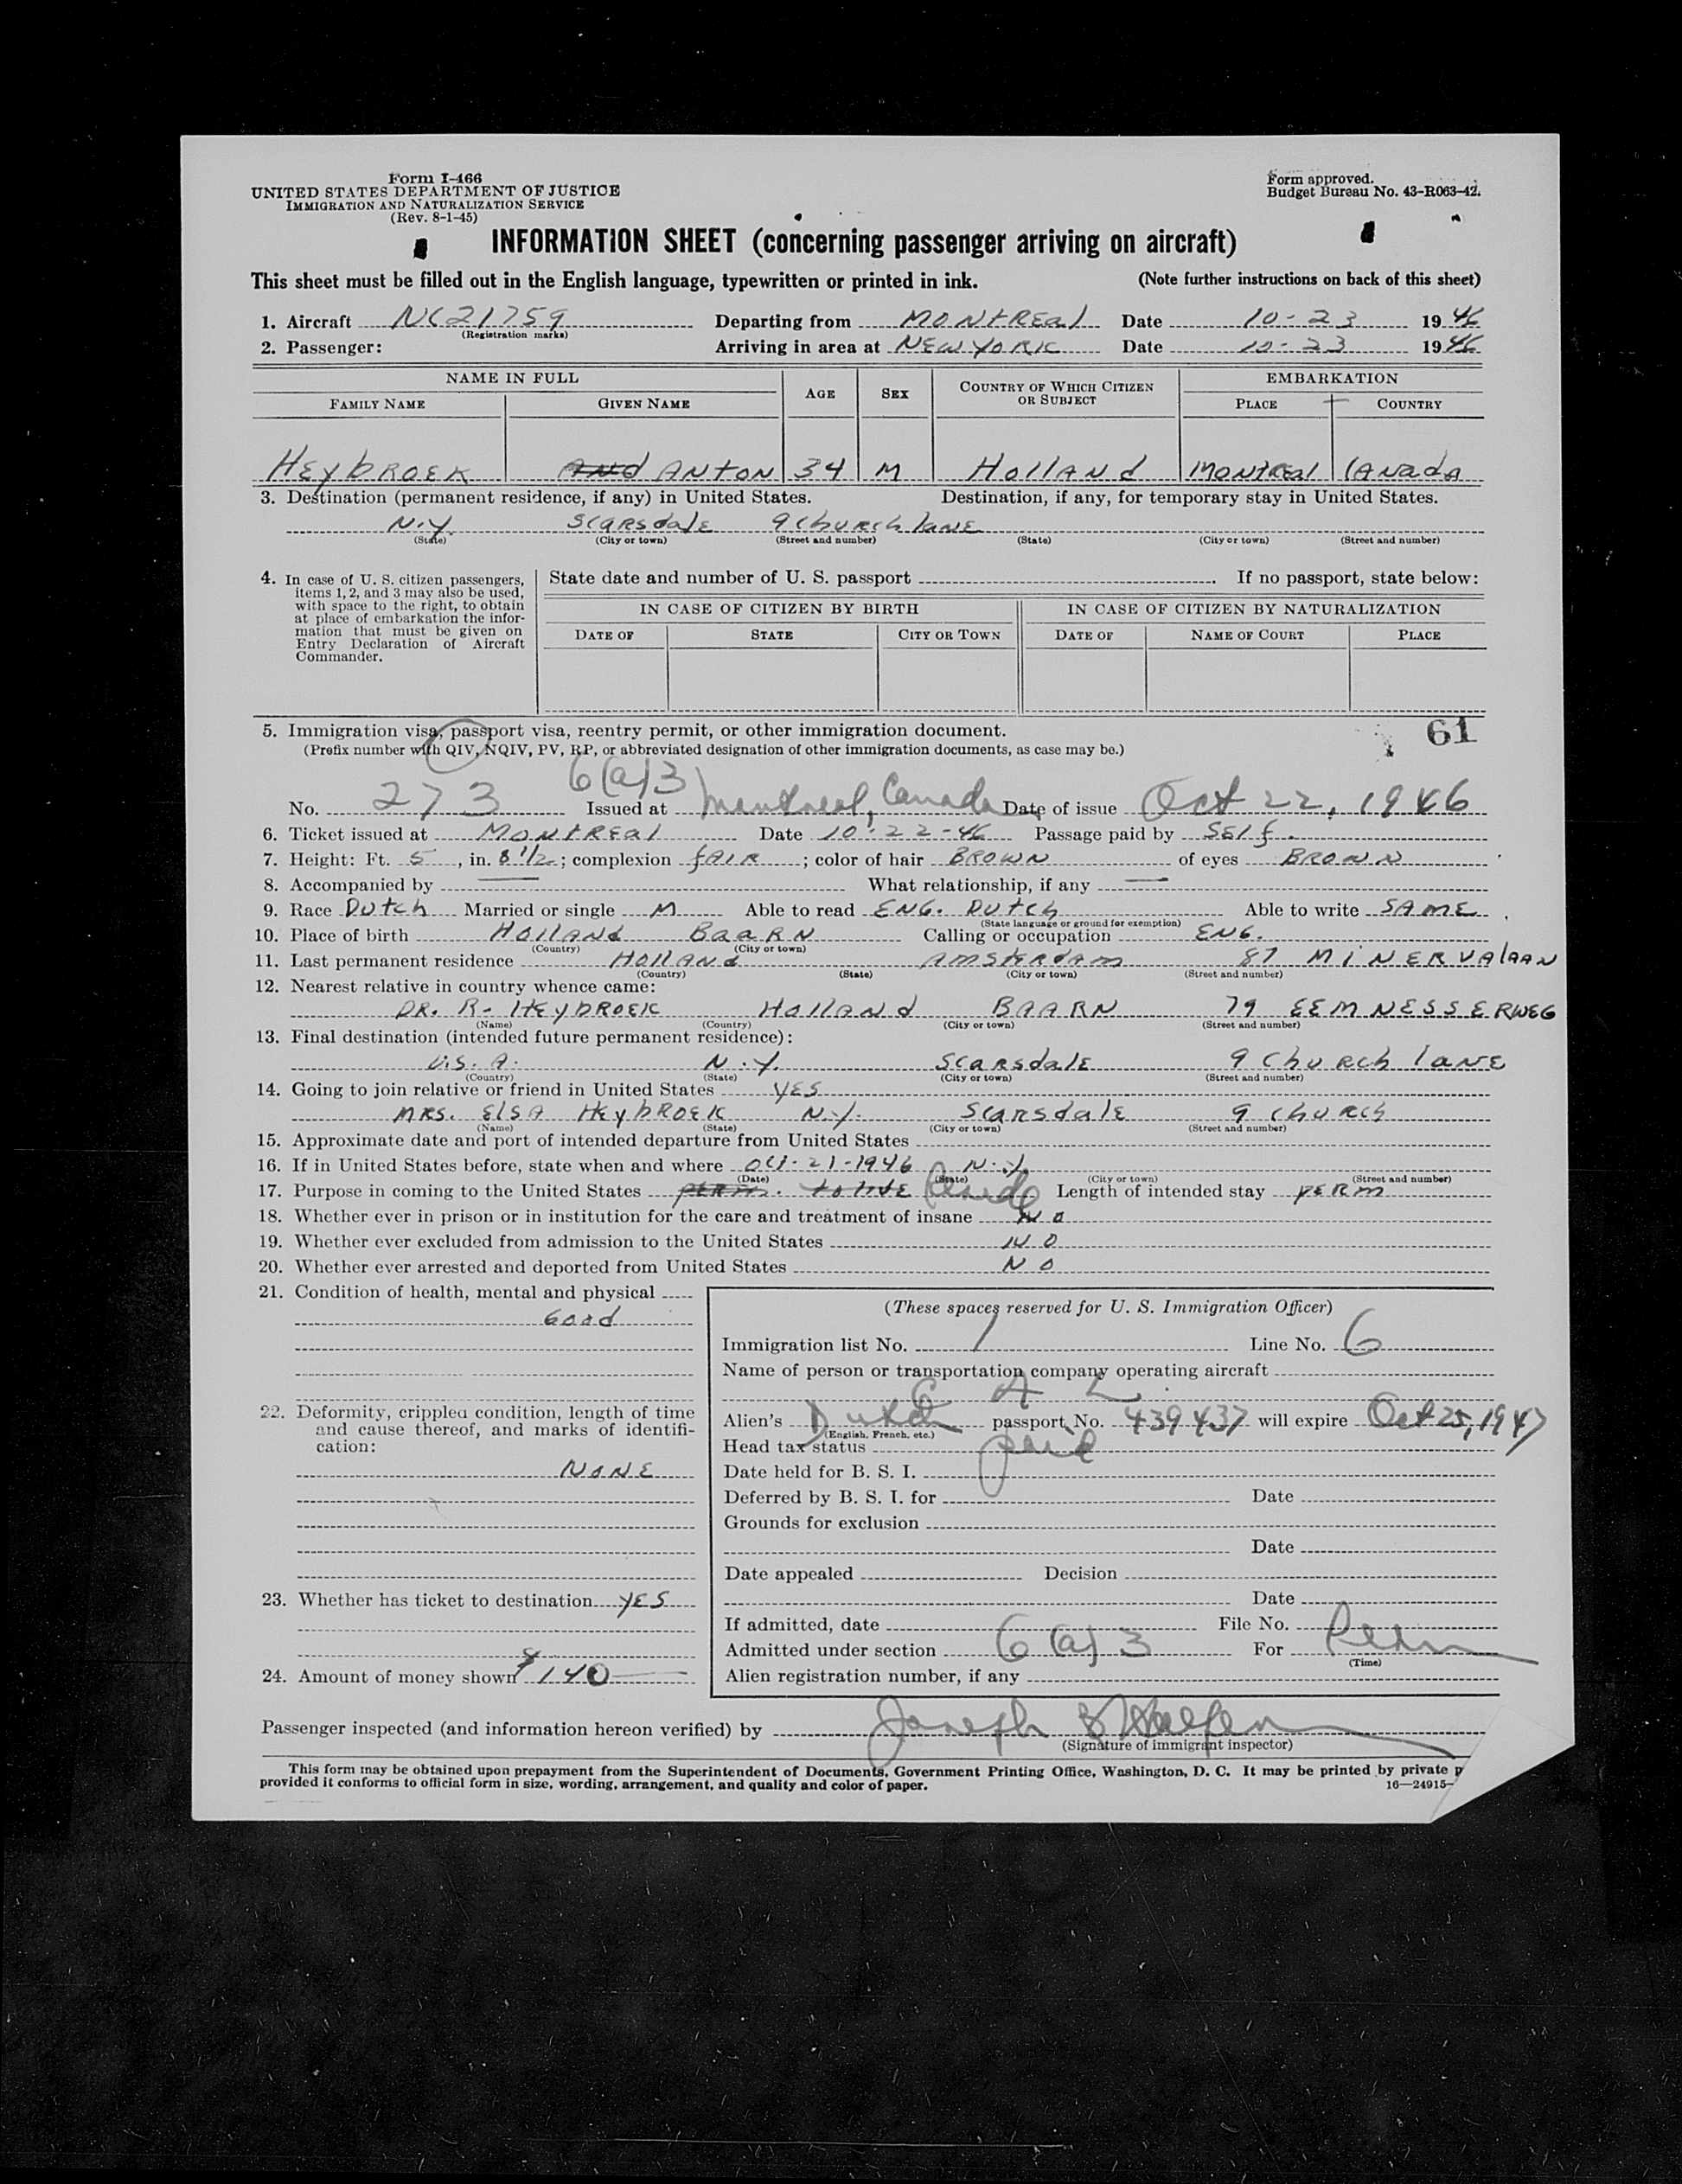 Form I-466
UNITED STATES DEPARTMENT OF JUSTICE
IMMIGRATION AND NATURALIZATION SERVICE
(Rev. 8-1-45)
Form approved.
Budget Bureau No. 43-R063-42.
INFORMATION SHEET (concerning passenger arriving on aircraft)
This sheet must be filled out in the English language, typewritten or printed in ink. (Note further instructions on back of this sheet)
1. Aircraft NC21759 Departing from MONTREAL Date 10-23 1946
(Registration marks)
2. Passenger: Arriving in area at NEW YORK Date 10-23 1946
NAME IN FULL AGE SEX COUNTRY OF WHICH CITIZEN OR SUBJECT EMBARKATION
FAMILY NAME GIVEN NAME PLACE COUNTRY
HEYbROEK ANd ANTON 34 M HOllANd MONTREAL CANADA
3. Destination (permanent residence, if any) in United States. Destination, if any, for temporary stay in United States.
N.Y. SCARSdALE 9 ChURCh lANE
(State) (City or town) (Street and number) (State) (City or town) (Street and number)
4. In case of U. S. citizen passengers, items 1, 2, and 3 may also be used, with space to the right, to obtain at place of embarkation the information that must be given on Entry Declaration of Aircraft Commander.
State date and number of U. S. passport . If no passport, state below:
IN CASE OF CITIZEN BY BIRTH IN CASE OF CITIZEN BY NATURALIZATION
DATE OF STATE CITY OR TOWN DATE OF NAME OF COURT PLACE
5. Immigration visa, passport visa, reentry permit, or other immigration document. 61
(Prefix number with QIV, NQIV, PV, RP, or abbreviated designation of other immigration documents, as case may be.)
6(a)3
No. 273 Issued at Montreal, Canada Date of issue Oct 22, 1946
6. Ticket issued at MONTREAL Date 10-22-46 Passage paid by SElf.
7. Height: Ft. 5, in. 8 1/2; complexion fAIR; color of hair BROWN of eyes BROWN
8. Accompanied by — What relationship, if any —
9. Race DUTCh Married or single M Able to read ENG. DUTCh Able to write SAME
(State language or ground for exemption)
10. Place of birth HOllANd BAARN Calling or occupation ENG.
(Country) (City or town)
11. Last permanent residence HOllANd AMSTERdAM 87 MINERVAlAAN
(Country) (State) (City or town) (Street and number)
12. Nearest relative in country whence came:
DR. R. HEYbROEK HOllANd BAARN 79 EEMNESSERWEG
(Name) (Country) (City or town) (Street and number)
13. Final destination (intended future permanent residence):
U.S.A. N.Y. SCARSdAlE 9 ChURCh lANE
(Country) (State) (City or town) (Street and number)
14. Going to join relative or friend in United States YES
MRS. ElSA HEYbROEK N.Y. SCARSdAlE 9 ChURCh
(Name) (State) (City or town) (Street and number)
15. Approximate date and port of intended departure from United States
16. If in United States before, state when and where OCT-21-1946 N.Y.
(Date) (State) (City or town) (Street and number)
17. Purpose in coming to the United States PERM. to lIVE Length of intended stay PERM
18. Whether ever in prison or in institution for the care and treatment of insane NO
19. Whether ever excluded from admission to the United States NO
20. Whether ever arrested and deported from United States NO
21. Condition of health, mental and physical
Good
22. Deformity, crippled condition, length of time and cause thereof, and marks of identification:
NONE
23. Whether has ticket to destination YES
24. Amount of money shown $140
(These spaces reserved for U. S. Immigration Officer)
Immigration list No. 1 Line No. 6
Name of person or transportation company operating aircraft
C A L
Alien's Dutch passport No. 439437 will expire Oct 25, 1947
(English, French, etc.)
Head tax status paid
Date held for B. S. I.
Deferred by B. S. I. for Date
Grounds for exclusion
Date
Date appealed Decision
Date
If admitted, date File No.
Admitted under section 6(a)3 For Perm
(Time)
Alien registration number, if any
Passenger inspected (and information hereon verified) by Joseph
(Signature of immigrant inspector)
This form may be obtained upon prepayment from the Superintendent of Documents, Government Printing Office, Washington, D. C. It may be printed by private p
provided it conforms to official form in size, wording, arrangement, and quality and color of paper. 16—24915-